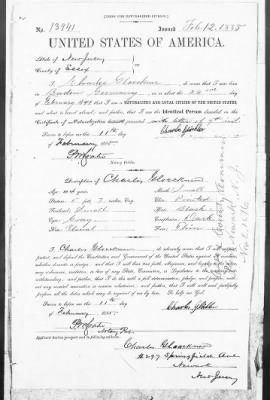 [FORM FOR NATURALIZED CITIZEN.]
No. 13941 Issued Feb. 12. 1885
UNITED STATES OF AMERICA.
State of New Jersey
County of Essex
I, Charles, do swear that I was born in
Baden Germany, on or about the 22 day
of February, that I am a NATURALIZED AND LOYAL CITIZEN OF THE UNITED STATES
and about to travel abroad; and further, that I am the Identical Person described in the
Certificate of Naturalization
Sworn to before me this 11th day
of February 1885.
Notary Public.
Description of Charles
Age:
Mouth: Small
Stature: 5 feet inches
Chin:
Forehead: Smooth
Hair: Black
Eyes: Gray
Complexion: Dark
Nose:
Face: Thin
I, Charles, do solemnly swear that I will support,
protect, and defend the Constitution and Government of the United States against all enemies,
whether domestic or foreign; and that I will bear true faith, allegiance, and loyalty to the same,
any ordinance, resolution, or law of any State, Convention, or Legislature to the contrary
notwithstanding; and further, that I do this with a full determination, pledge, and purpose, without
any mental reservation or evasion whatsoever; and further, that I will well and faithfully
perform all the duties which may be required of me by law. So help me God.
Sworn to before me this 11th day
of February 1885.
Notary Pub.
Applicant desires passport sent to following address:
Charles
Springfield Ave
Newark
New Jersey